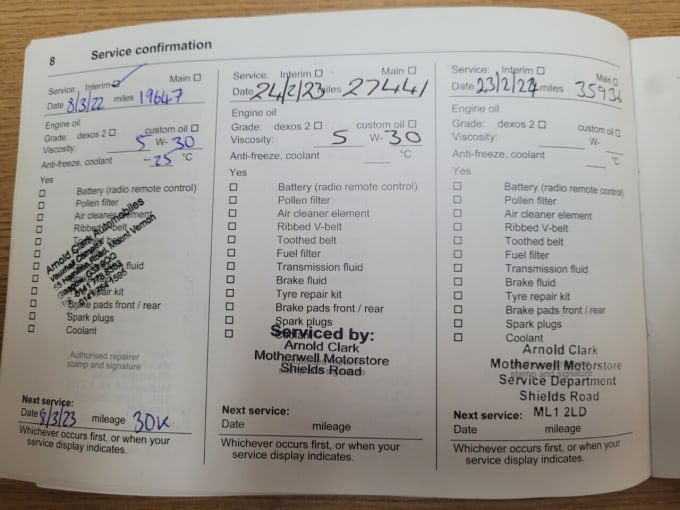 8 Service confirmation
Service: Interim ☑ Main ☐
Date 8/3/22 miles 19647
Engine oil
Grade: dexos 2 ☐ custom oil ☐
Viscosity: 5 W- 30
Anti-freeze, coolant -25 °C
Yes
☐ Battery (radio remote control)
☐ Pollen filter
☐ Air cleaner element
☐ Ribbed V-belt
☐
☐
☐ fluid
☐
☐ repair kit
☐ Brake pads front / rear
☐ Spark plugs
☐ Coolant
Arnold Clark Automobiles
Mount Vernon
Authorised repairer
stamp and signature
Next service:
Date 8/3/23 mileage 30K
Whichever occurs first, or when your
service display indicates.
Service: Interim ☐ Main ☐
Date 24/2/23 miles 27441
Engine oil
Grade: dexos 2 ☐ custom oil ☐
Viscosity: 5 W- 30
Anti-freeze, coolant °C
Yes
☐ Battery (radio remote control)
☐ Pollen filter
☐ Air cleaner element
☐ Ribbed V-belt
☐ Toothed belt
☐ Fuel filter
☐ Transmission fluid
☐ Brake fluid
☐ Tyre repair kit
☐ Brake pads front / rear
☐ Spark plugs
☐ Coolant
Serviced by:
Arnold Clark
Motherwell Motorstore
Shields Road
Next service:
Date mileage
Whichever occurs first, or when your
service display indicates.
Service: Interim ☐ Main ☐
Date 23/2/24 miles 35936
Engine oil
Grade: dexos 2 ☐ custom oil ☐
Viscosity: W-
Anti-freeze, coolant °C
Yes
☐ Battery (radio remote control)
☐ Pollen filter
☐ Air cleaner element
☐ Ribbed V-belt
☐ Toothed belt
☐ Fuel filter
☐ Transmission fluid
☐ Brake fluid
☐ Tyre repair kit
☐ Brake pads front / rear
☐ Spark plugs
☐ Coolant
Arnold Clark
Motherwell Motorstore
stamp and signature
Service Department
Shields Road
Next service: ML1 2LD
Date mileage
Whichever occurs first, or when your
service display indicates.